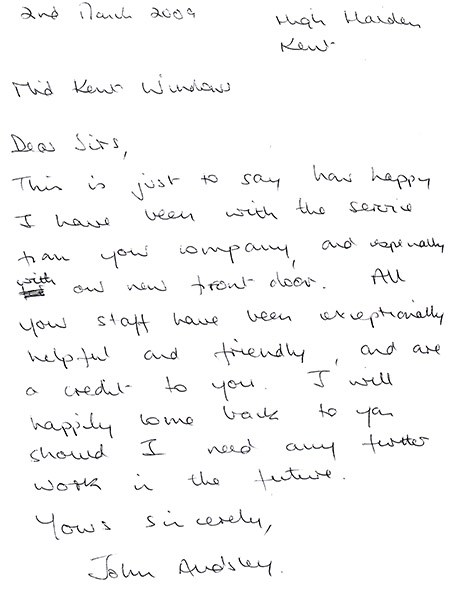 2nd March 2009
High Halden
Kent
Mid Kent Windows
Dear Sirs,
This is just to say how happy
I have been with the service
from your company, and especially
with our new front door. All
your staff have been exceptionally
helpful and friendly, and are
a credit to you. I will
happily come back to you
should I need any further
work in the future.
Yours sincerely,
John Audsley.